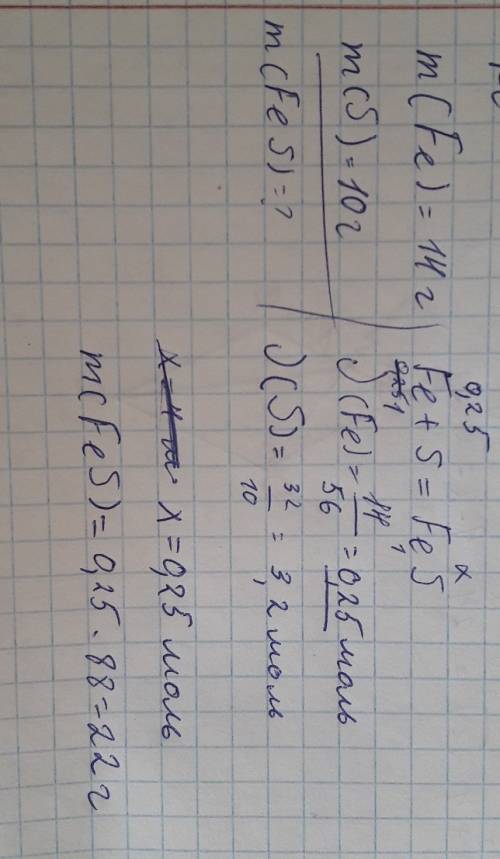 m(Fe) = 14 г
m(S) = 10 г
m(FeS) = ?
0,25 x
Fe + S = FeS
1 1
ν(Fe) = 14/56 = 0,25 моль
ν(S) = 32/10 = 3,2 моль
x = 0,25 моль
m(FeS) = 0,25 · 88 = 22 г